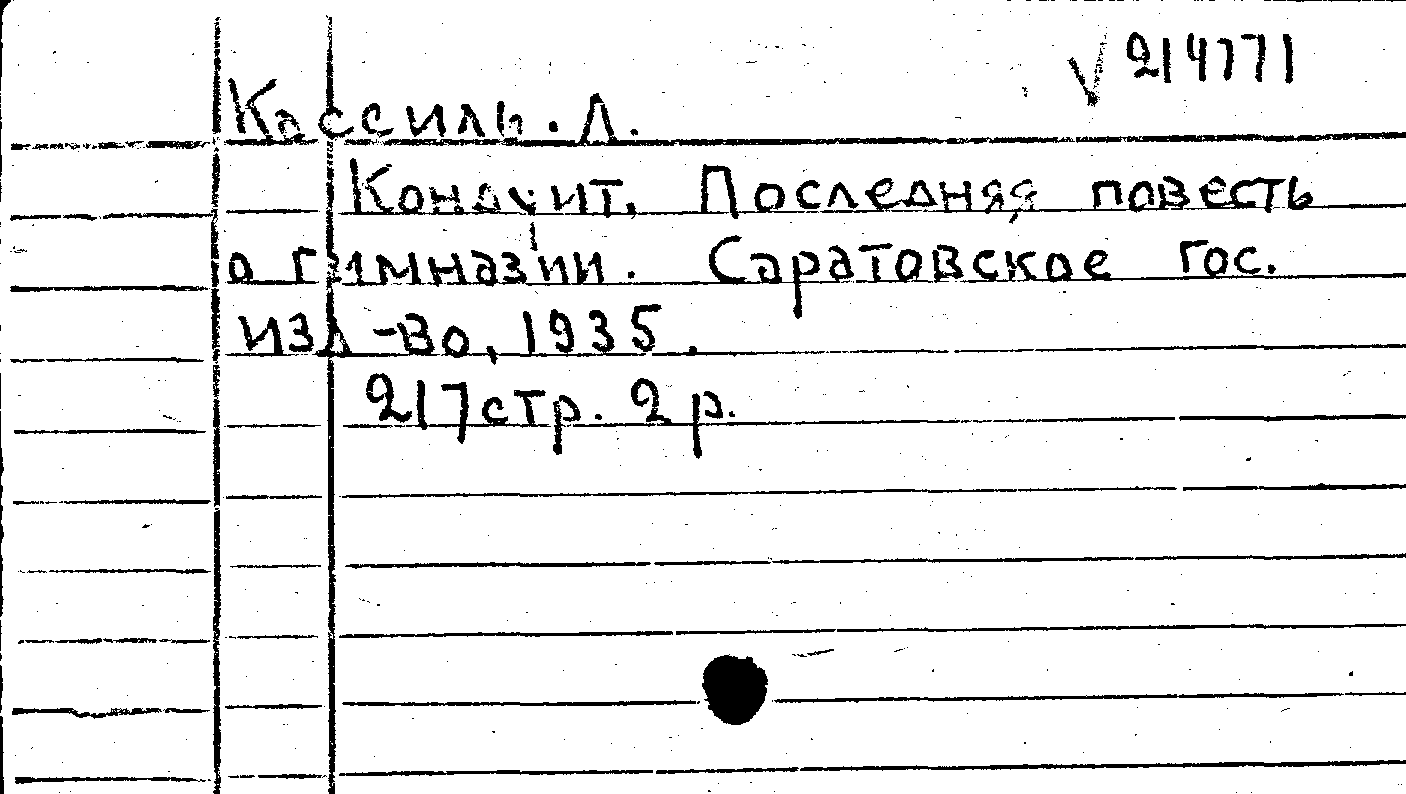 √ 214771
Кассиль. Л.
Кондуит. Последняя повесть
о гимназии. Саратовское Гос.
изд-во, 1935.
217 стр. 2 р.